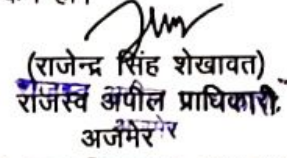 (राजेन्द्र सिंह शेखावत)
राजस्व अपील प्राधिकारी.
अजमेर